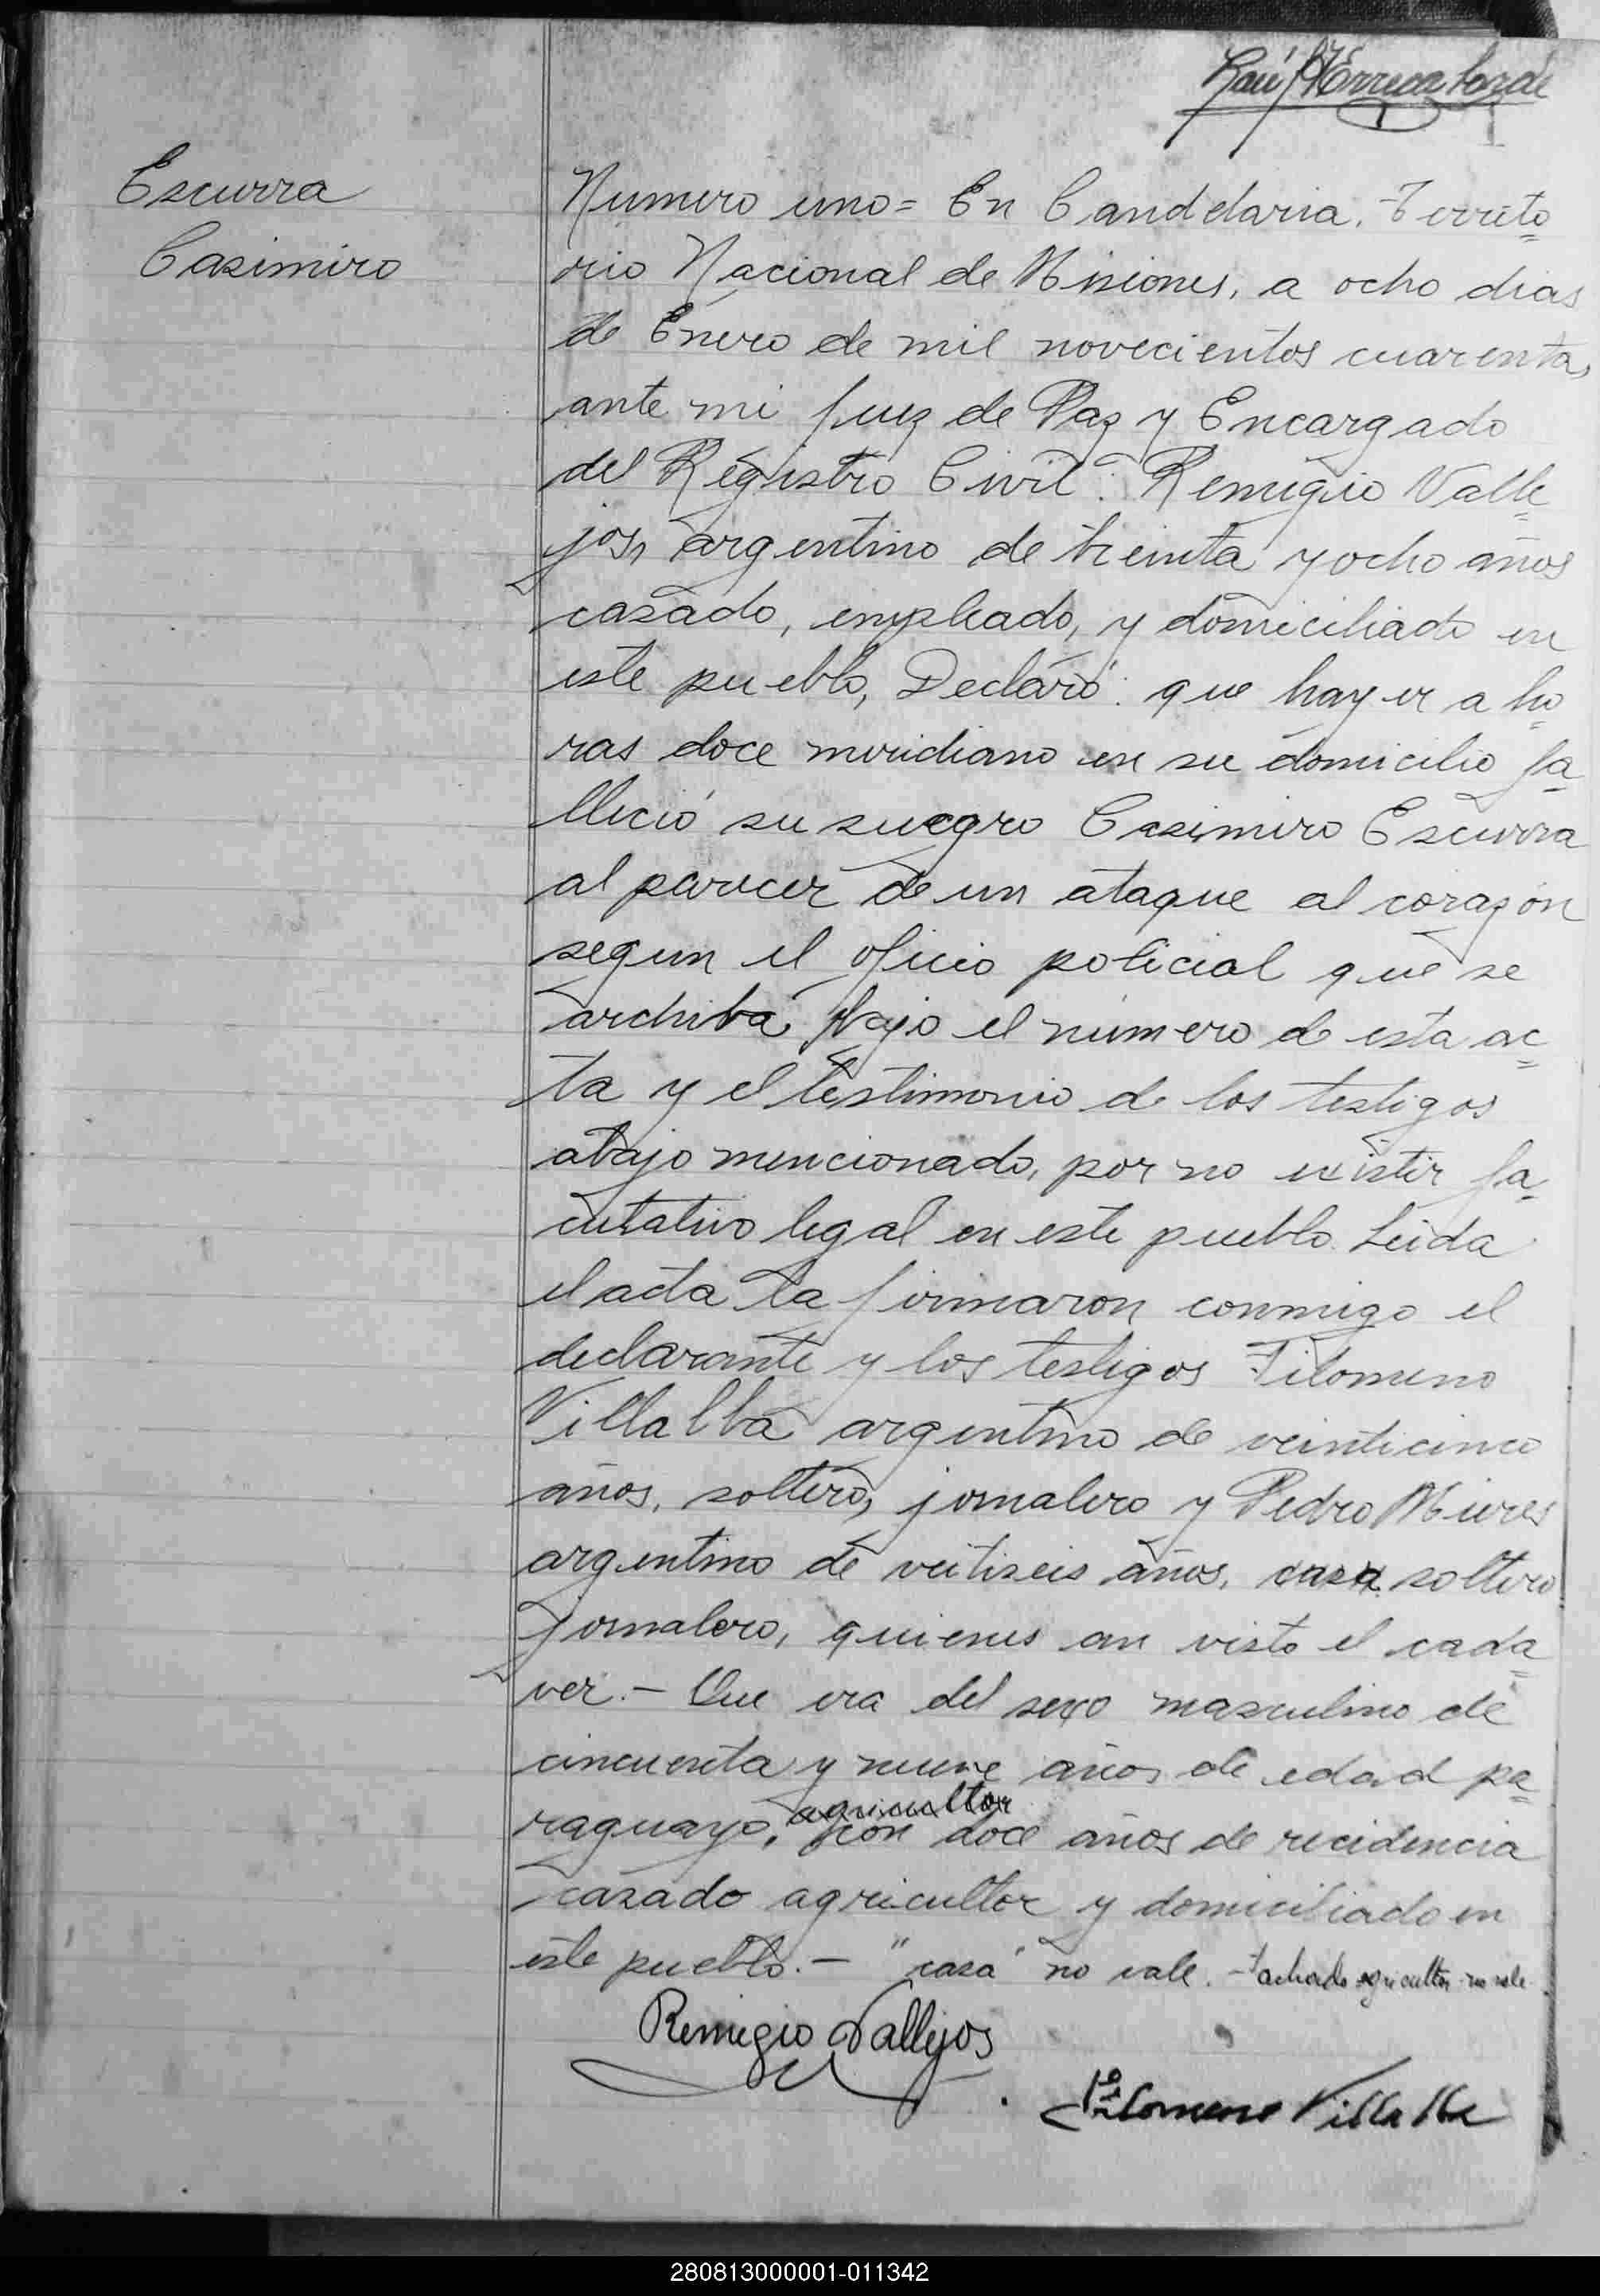 Raúl Herrecaborde
Escurra
Casimiro
Numero uno= En Candelaria. Territo
rio Nacional de Misiones, a ocho dias
de Enero de mil novecientos cuarenta,
ante mi Juez de Paz y Encargado
del Registro Civil: Remigio Valle
jos, argentino de treinta y ocho años
casado, empleado, y domiciliado en
este pueblo, Declaró: que hayer a ho
ras doce meridiano en su domicilio fa
lleció su suegro Casimiro Escurra
al parecer de un ataque al corazón
segun el oficio policial que se
archiba bajo el número de esta ac
ta y el testimonio de los testigos
abajo mencionado, por no existir fa
cutativo legal en este pueblo. Leida
el acta la firmaron conmigo el
declarante y los testigos Filomeno
Villalba argentino de veinticinco
años, soltero, jornalero y Pedro Mieres
argentino de veitiseis años, casa soltero
jornalero, quienes an visto el cada
ver.- Que era del sexo masculino de
cincuenta y nueve años de edad pa
agricultor
raguayo, con doce años de recidencia
casado agricultor y domiciliado en
este pueblo.- "casa" no vale. - Tachado agricultor no vale
Remigio Vallejos
Filomeno Villalba
280813000001-011342